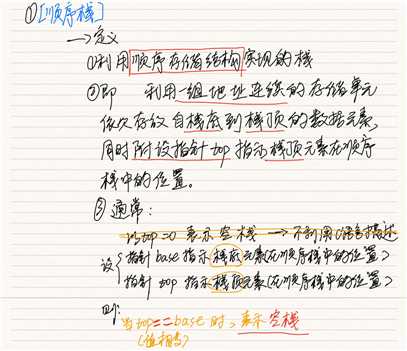 ①[顺序栈]
→定义
①利用顺序存储结构实现的栈
②即 利用一组地址连续的存储单元
依次存放自栈底到栈顶的数据元素,
同时附设指针top指示栈顶元素在顺序
栈中的位置。
③通常:
以top=0表示空栈 → 不利用C语言描述
设{指针base指示栈底元素(在顺序栈中的位置)
指针top指示栈顶元素(在顺序栈中的位置)
则:
当top==base时,表示空栈
(值相等)